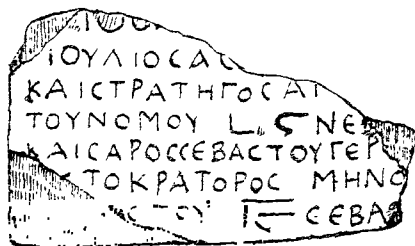 ΙΟΥΛΙΟΣΑΣ
ΚΑΙΣΤΡΑΤΗΓΟΣΑΓ
ΤΟΥΝΟΜΟΥ L Ϛ ΝΕΡ
ΚΑΙΣΑΡΟΣΣΕΒΑΣΤΟΥΓΕΡ
ΤΟΚΡΑΤΟΡΟΣ ΜΗΝΟ
ΣΤΟΥ ΣΕΒΑ